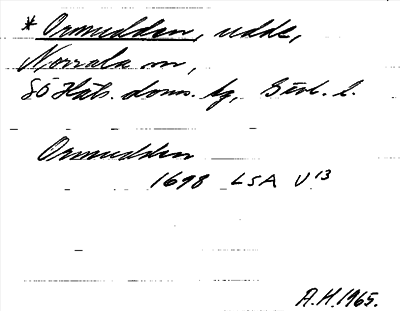 * Ormudden, udde,
Norrala sn,
SÖ Häls. doms. tg, Gävl. l.
Ormudden
1698 LSA U 13
A.H. 1965.